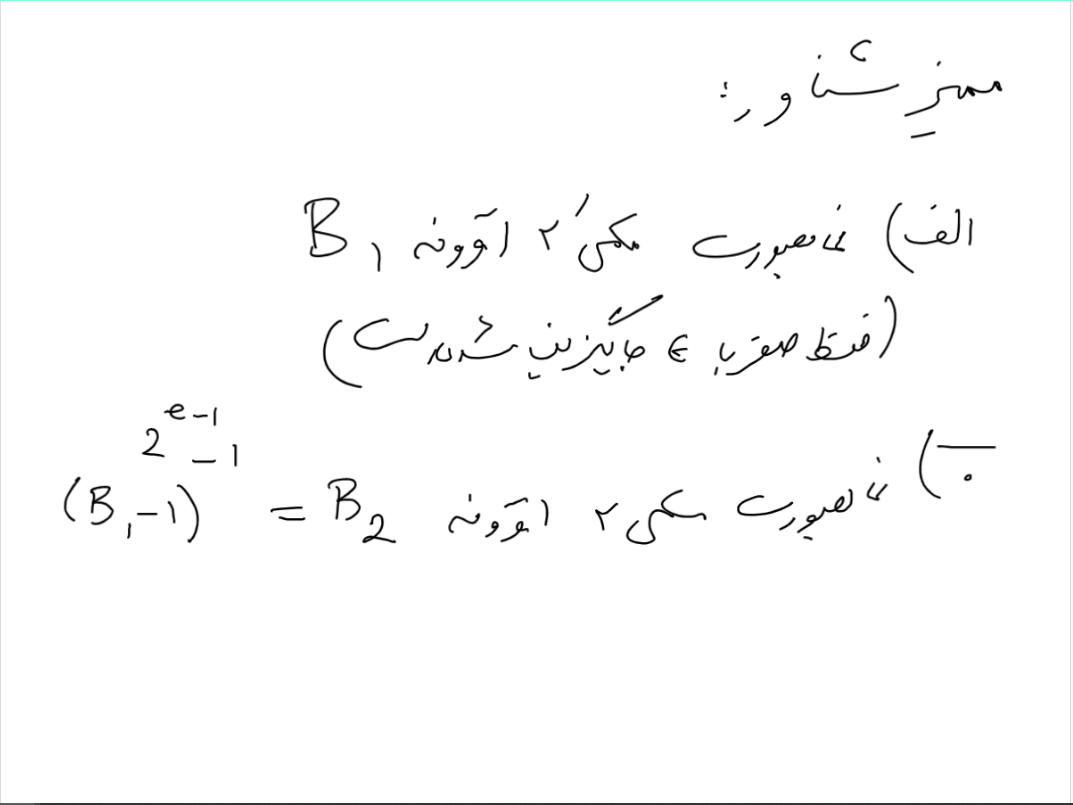 ممیز شناور:
الف) نما بصورت مکمل ۲ اتوونه B1
(فقط صفر با ∈ جایگزین شده است)
ب) نما بصورت مکمل ۲ اتوونه B2 = (B1-1) 2^e-1 -1